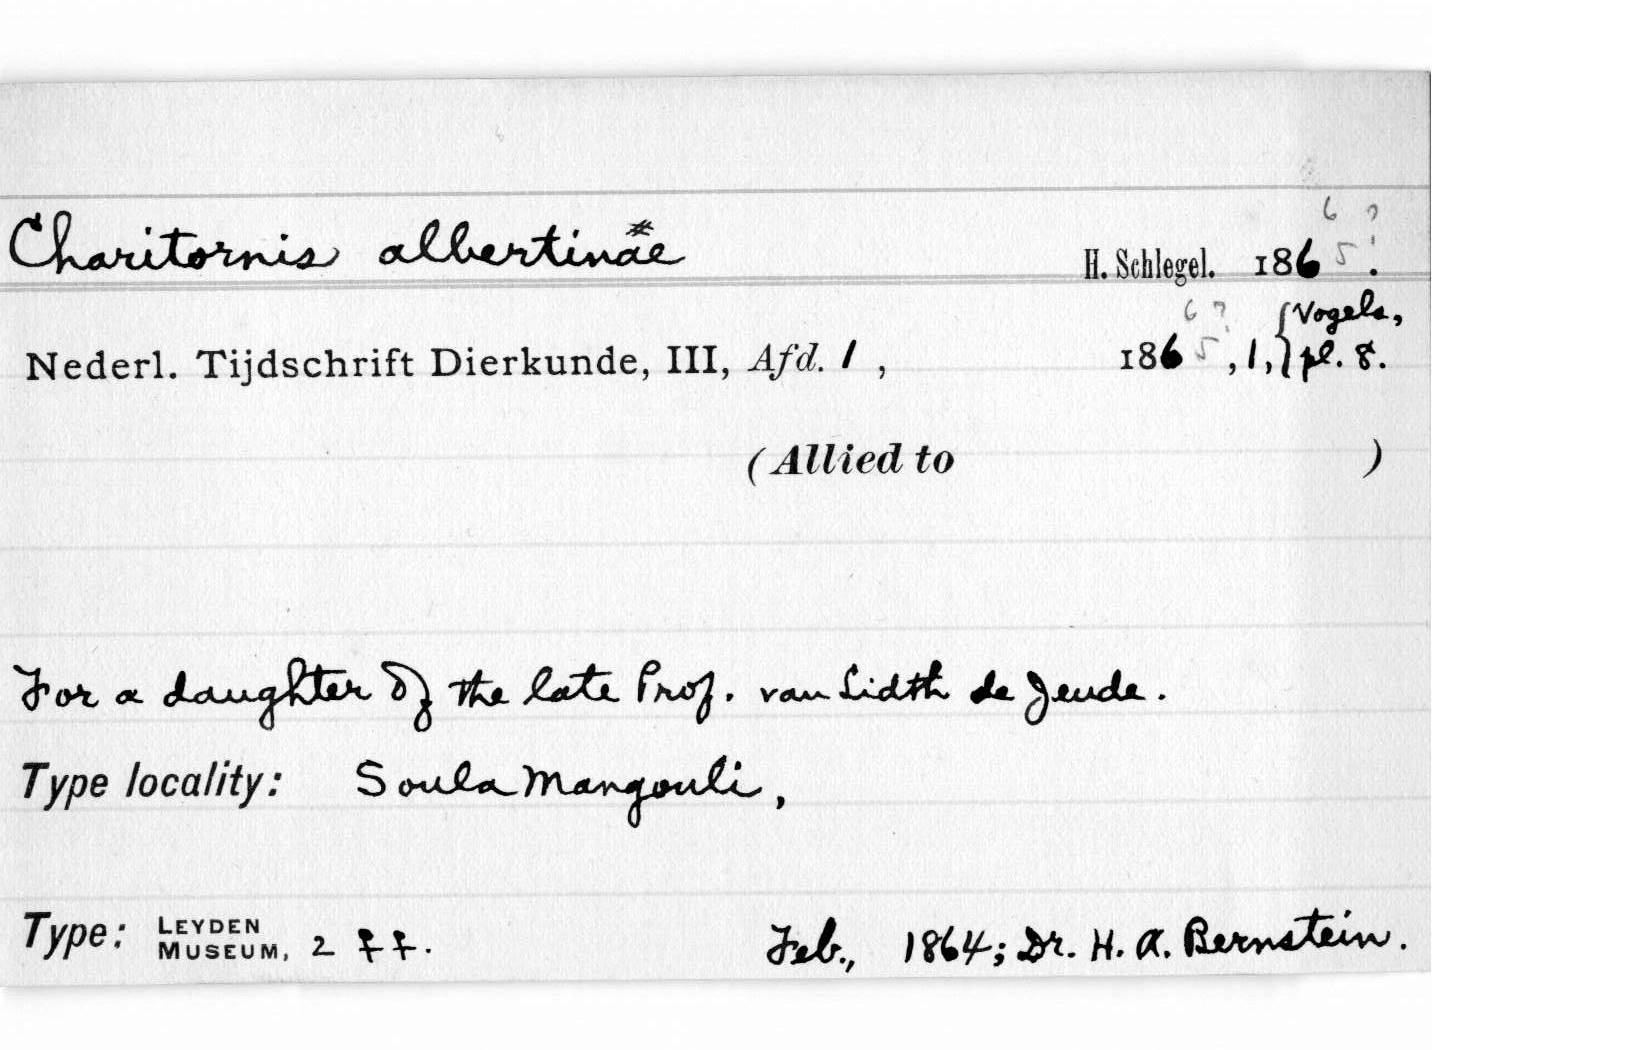 6 ?
Charitornis albertinae H. Schlegel. 1865.
6 ?
Nederl. Tijdschrift Dierkunde, III, Afd. 1, 1865, 1, {Vogels,
pl. 8.
(Allied to )
For a daughter of the late Prof. van Lidth de Jeude.
Type locality: Soula Mangouli,
Type: LEYDEN
MUSEUM, 2 ♀♀. Feb., 1864; Dr. H. A. Bernstein.